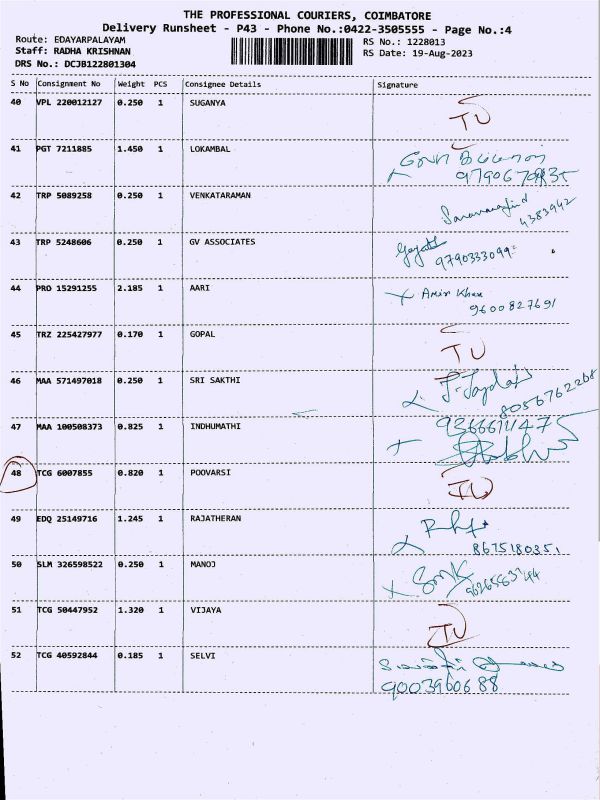 THE PROFESSIONAL COURIERS, COIMBATORE
Delivery Runsheet - P43 - Phone No.:0422-3505555 - Page No.:4
Route: EDAYARPALAYAM RS No.: 1228013
Staff: RADHA KRISHNAN RS Date: 19-Aug-2023
DRS No.: DCJB122801304
S No Consignment No Weight PCS Consignee Details Signature
40 VPL 220012127 0.250 1 SUGANYA
41 PGT 7211885 1.450 1 LOKAMBAL
42 TRP 5089258 0.250 1 VENKATARAMAN
4383942
43 TRP 5248606 0.250 1 GV ASSOCIATES
9790333099
44 PRO 15291255 2.185 1 AARI Amir Khan
9600827691
45 TRZ 225427977 0.170 1 GOPAL
46 MAA 571497018 0.250 1 SRI SAKTHI
8056762268
47 MAA 100508373 0.825 1 INDHUMATHI 9366611475
48 TCG 6007855 0.820 1 POOVARSI
49 EDQ 25149716 1.245 1 RAJATHERAN
8675180351
50 SLM 326598522 0.250 1 MANOJ
51 TCG 50447952 1.320 1 VIJAYA
52 TCG 40592844 0.185 1 SELVI
9003960688